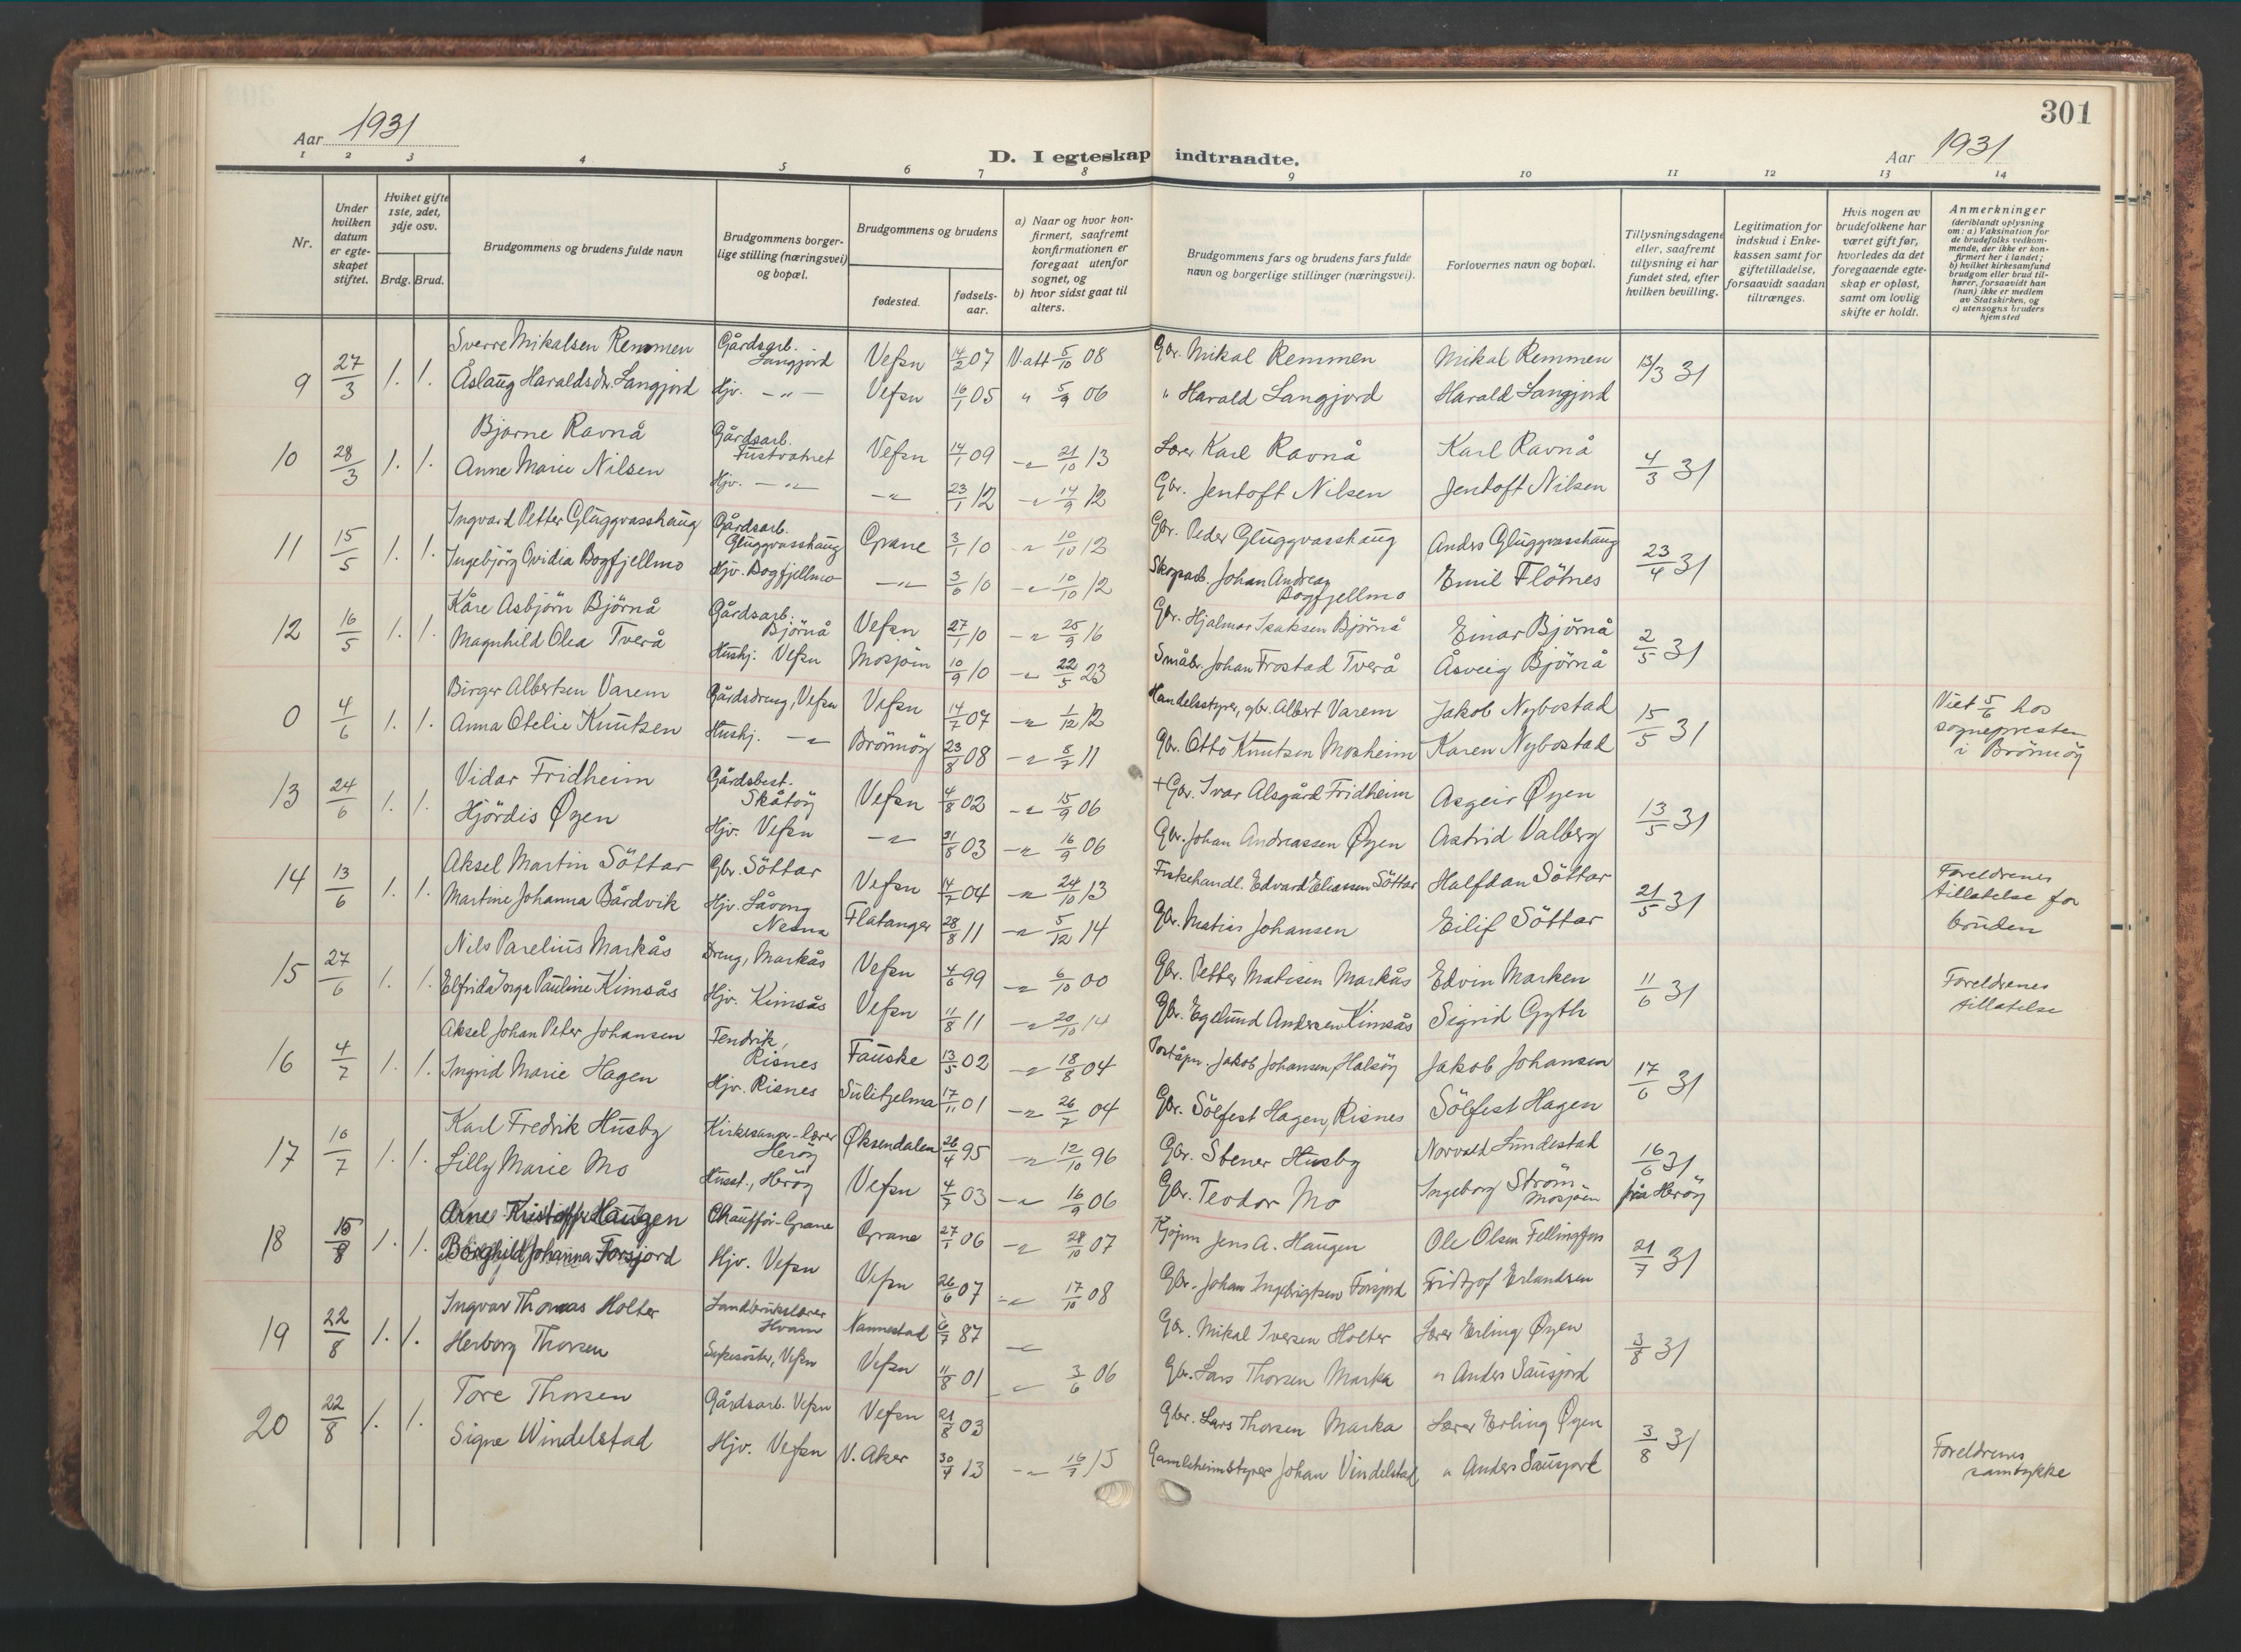 301
Aar 1931
D. I egteskap indtraadte.
Aar 1931
1 2 3 4 5 6 7 8 9 10 11 12 13 14
Nr.
Under hvilken datum er egteskapet stiftet.
Hviket gifte 1ste, 2det, 3dje osv.
Brdg. Brud.
Brudgommens og brudens fulde navn
Brudgommens borgerlige stilling (næringsvei) og bopæl.
Brudgommens og brudens
fødested.
fødselsaar.
a) Naar og hvor konfirmert, saafremt konfirmationen er foregaat utenfor sognet, og
b) hvor sidst gaat til alters.
Brudgommens fars og brudens fars fulde navn og borgerlige stillinger (næringsvei).
Forlovernes navn og bopæl.
Tillysningsdagene eller, saafremt tillysning ei har fundet sted, efter hvilken bevilling.
Legitimation for indskud i Enkekassen samt for giftetilladelse, forsaavidt saadan tiltrænges.
Hvis nogen av brudefolkene har været gift før, hvorledes da det foregaaende egteskap er opløst, samt om lovlig skifte er holdt.
Anmerkninger
(deriblandt oplysning om: a) Vaksination for de brudefolks vedkommende, der ikke er konfirmert her i landet; b) hvilket kirkesamfund brudgom eller brud tilhører, forsaavidt han (hun) ikke er medlem av Statskirken, og c) utensogns bruders hjemsted
9 27/3 1. 1. Sverre Mikalsen Remmen Gårdsarb. Langjord Vefsn 14/2 07 V.att 5/10 08 Gbr. Mikal Remmen Mikal Remmen 13/3 31
Åslaug Haraldsdr. Langjord Hjv. -"- Vefsn 16/1 05 " 5/9 06 " Harald Langjord Harald Langjord
10 28/3 1. 1. Bjarne Ravnå Gårdsarb. Fustvatnet Vefsn 14/1 09 -"- 21/10 13 Lærer Karl Ravnå Karl Ravnå 4/3 31
Anne Marie Nilsen Hjv. -"- -"- 23/1 12 -"- 14/9 12 Gbr. Jentoft Nilsen Jentoft Nilsen
11 15/5 1. 1. Ingvard Petter Gluggvasshaug Gårdsarb. Gluggvasshaug Grane 3/1 10 -"- 10/10 12 Gbr. Peder Gluggvasshaug Anders Gluggvasshaug 23/4 31
Ingebjörg Ovidia Bogfjellmo Hjv. Bogfjellmo -"- 3/6 10 -"- 10/10 12 Skogsarb. Johan Andreas Bogfjellmo Emil Flötnes
12 16/5 1. 1. Kåre Asbjörn Björnå Gårdsarb. Björnå Vefsn 27/1 10 -"- 25/9 16 Gbr. Hjalmar Isaksen Björnå Einar Björnå 2/5 31
Magnhild Olea Tverå Hushj. Vefsn Mosjöen 10/9 10 -"- 22/5 23 Småbr. Johan Frostad Tverå Åsveig Björnå
0 4/6 1. 1. Birger Albertsen Varem Gårdsdreng, Vefsn Vefsn 14/7 07 -"- 1/12 12 Handelsstyrer, gbr. Albert Varem Jakob Nybostad 15/5 31 Viet 5/6 hos sognepresten i Brönnöy
Anna Otelie Knutsen Hushj. -"- Brönnöy 23/8 08 -"- 8/7 11 Gbr. Otto Knutsen Mosheim Karen Nybostad
13 24/6 1. 1. Vidar Fridheim Gårdsbest. Skåtöy Vefsn 4/8 02 -"- 15/9 06 + Gbr. Ivar Alsgård Fridheim Asgeir Øyen 13/5 31
Hjördis Øyen Hjv. Vefsn -"- 31/8 03 -"- 16/9 06 Gbr. Johan Andreassen Øyen Astrid Valberg
14 13/6 1. 1. Aksel Martin Söttar Gbr. Söttar Vefsn 14/7 04 -"- 24/10 13 Fiskehandl. Edvard Eliassen Söttar Halfdan Söttar 21/5 31 Foreldrenes tillatelse for bruden
Martine Johanna Bårdvik Hjv. Låvong Nesna Flatanger 28/8 11 -"- 5/12 14 Gbr. Matias Johansen Eilif Söttar
15 27/6 1. 1. Nils Parelius Markås Dreng, Markås Vefsn 4/6 99 -"- 6/10 00 Gbr. Petter Matisen Markås Edvin Marken 11/6 31 Foreldrenes tillatelse
Elfrida Inga Pauline Kimsås Hjv. Kimsås Vefsn 11/8 11 -"- 20/10 14 Gbr. Egelund Andersen Kimsås Sigrid Gyth
16 4/7 1. 1. Aksel Johan Peter Johansen Fendrik, Risnes Fauske 13/5 02 -"- 18/8 04 Poståpn. Jakob Johansen, Halsöy Jakob Johansen 17/6 31
Ingrid Marie Hagen Hjv. Risnes Sulitjelma 17/11 01 -"- 26/7 04 Gbr. Sölfest Hagen, Risnes Sölfest Hagen
17 10/7 1. 1. Karl Fredrik Husby Kirkesanger-lærer Heröy Øksendalen 26/4 95 -"- 12/10 96 Gbr. Stener Husby Norvald Lundestad 16/6 31 fra Heröy
Lilly Marie Mo Husst., Heröy Vefsn 4/7 03 -"- 16/9 06 Gbr. Teodor Mo Ingeborg Ström Mosjöen
18 15/8 1. 1. Arne Kristoffer Haugen Chauffør-Grane Grane 27/1 06 -"- 28/10 07 Kjøpm Jens A. Haugen Ole Olsen Fellingfors 21/7 31
Borghild Johanna Forsjord Hjv. Vefsn Vefsn 26/6 07 -"- 17/10 08 Gbr. Johan Ingebrigtsen Forsjord Fridtjof Erlandsen
19 22/8 1. 1. Ingvar Thomas Holter Landbrukslærer Hvam Nannestad 6/7 87 -"- Gbr. Mikal Iversen Holter Lærer Erling Øyen 3/8 31
Herborg Thorsen Sykesöster, Vefsn Vefsn 11/8 01 -"- 3/6 06 Gbr. Lars Thorsen Marka " Anders Sausjord
20 22/8 1. 1. Tore Thorsen Gårdsarb. Vefsn Vefsn 21/8 03 Gbr. Lars Thorsen Marka Lærer Erling Øyen 3/8 31
Signe Windelstad Hjv. Vefsn V. Aker 30/4 13 -"- 16/7 15 Gamleheimstyrer Johan Vindelstad " Anders Sausjord Foreldrenes samtykke